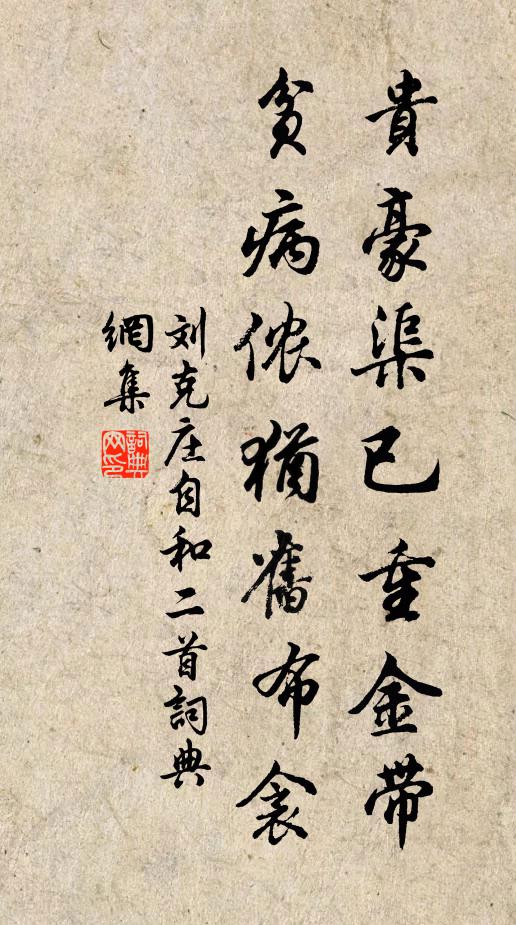 貴豪渠已重金帶
貧病侬猶舊布衾
刘克庄自和二首詞典
網集
詞典
网印